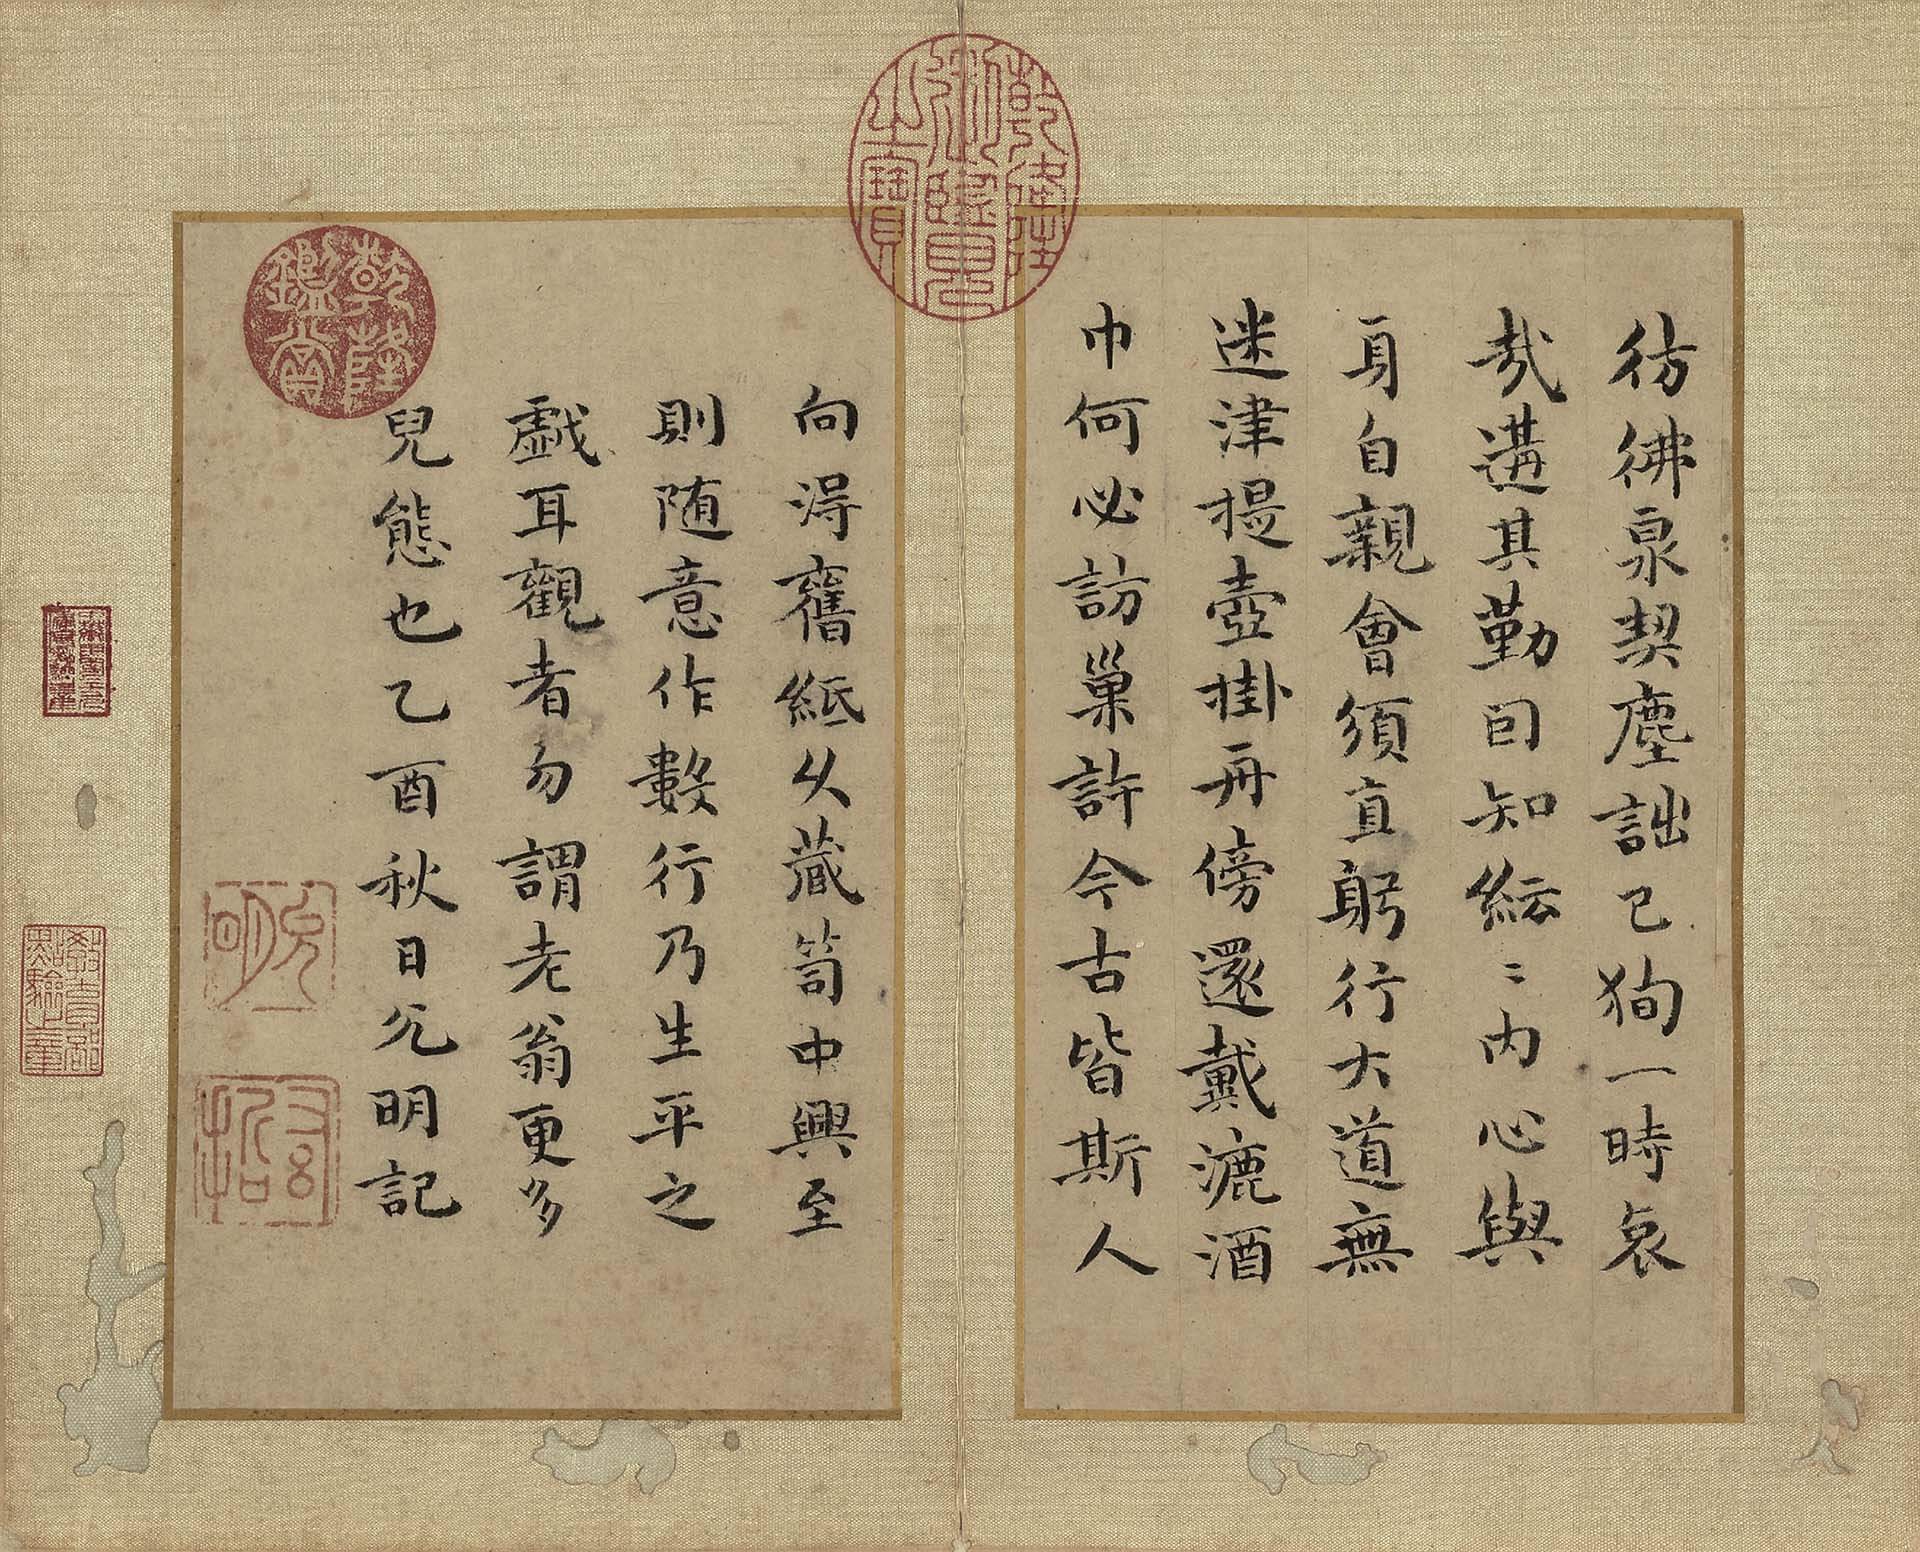 彷彿泉契塵詘已狥一時哀
哉遘其勤回知紜〻内心與
身自親會須直躬行大道無
迷津提壺掛舟傍還戴漉酒
巾何必訪巢許今古皆斯人
向淂舊紙久藏笥中興至
則随意作數行乃生平之
戯耳觀者勿謂老翁更多
兒態也乙酉秋日允明記
乾隆御覽之寶
乾隆鑑賞
允明